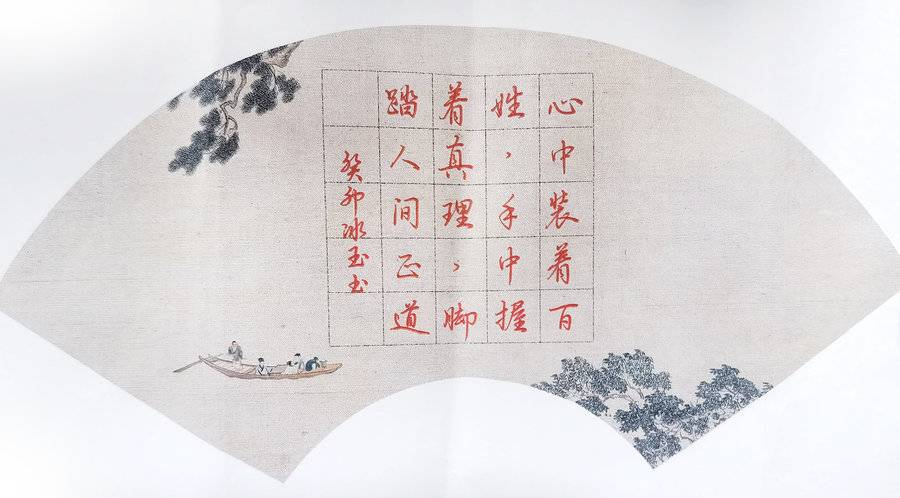 心中装着百
姓,手中握
着真理,脚
踏人间正道
癸卯冰玉书